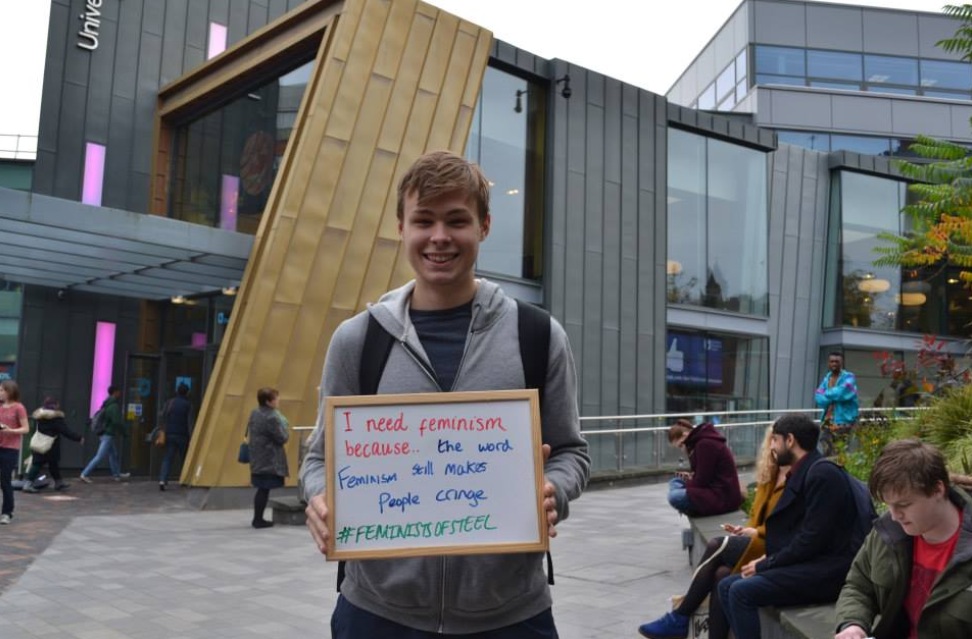 Unive
I need feminism
because.. the word
Feminism still makes
People cringe
#FEMINISTSOFSTEEL